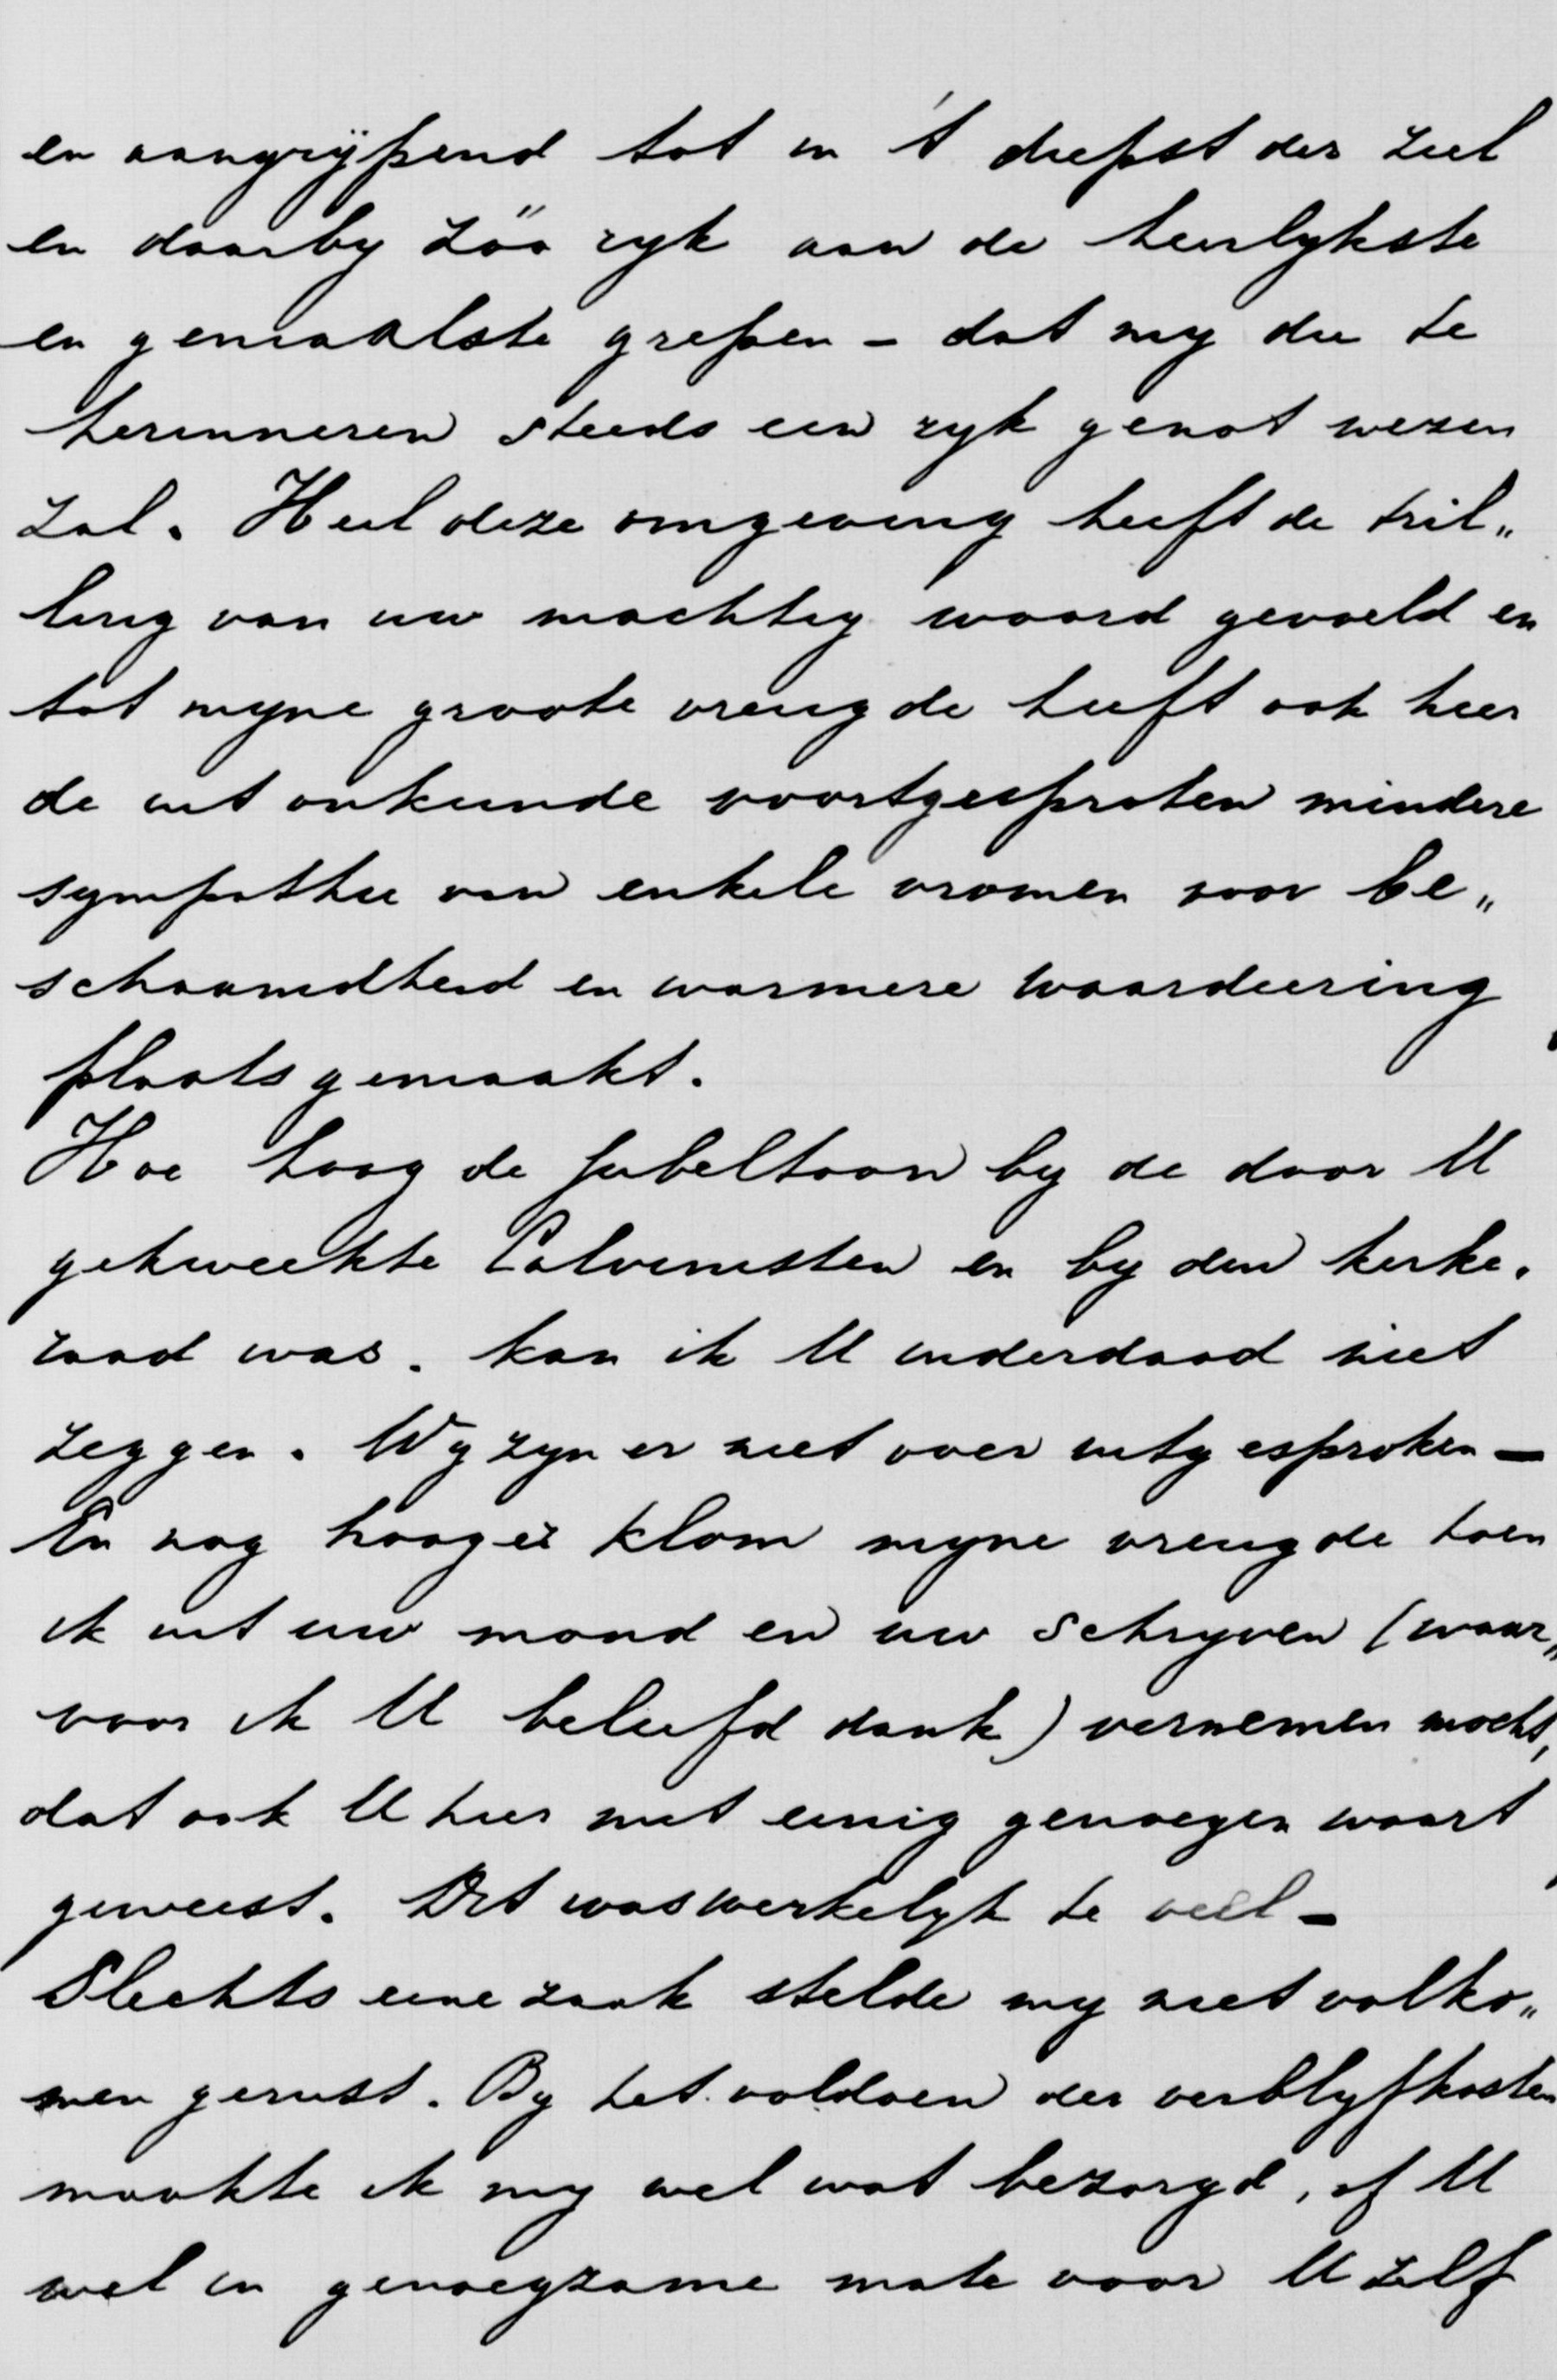 en aangrijpend tot in 't diepst der ziel
en daarby zóó ryk aan de heerlykste
en geniaalste grepen – dat my die te
herinneren steeds een ryk genot wezen
zal. Heel deze omgeving heeft de tril„
ling van uw machtig woord gevoeld en
tot myne groote vreugde heeft ook hier
de uit onkunde voortgesproten mindere
sympathie van enkele vromen voor be„
schaamdheid en warmere waardeering
plaats gemaakt.
Hoe hoog de jubeltoon by de door U
gekweekte Calvinisten en by den kerke.
raad was. kan ik U inderdaad niet
zeggen. Wy zyn er niet over uitgesproken –
En nog hooger klom myne vreugde toen
ik uit uw mond en uw schryven (waar„
voor ik U beleefd dank) vernemen mocht,
dat ook U hier met eenig genoegen waart
geweest. Dit was werkelyk te veel –
Slechts eene zaak stelde my niet volko„
men gerust. By het voldoen der verblyfkosten
maakte ik my wel wat bezorgd, of U
wel in genoegzame mate voor U zelf